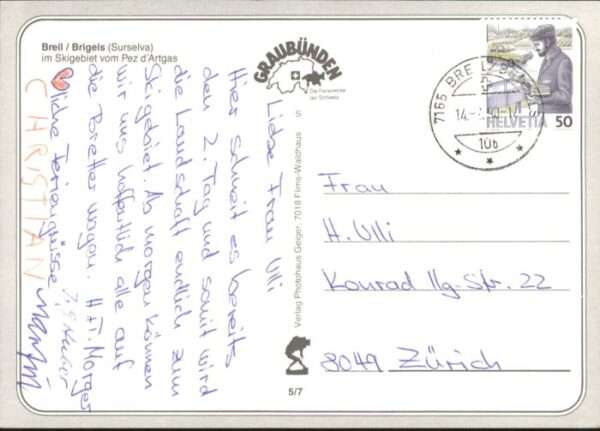 Breil / Brigels (Surselva)
im Skigebiet vom Pez d'Artgas
GRAUBÜNDEN
Die Ferienecke
der Schweiz
Liebe Frau Ulli
Hier schneit es bereits
den 2. Tag und somit wird
die Landschaft endlich zum
Skigebiet. Ab morgen können
wir uns hoffentlich alle auf
die Bretter wagen.
liche Feriengrüsse
CHRISTIAN
S
Verlag Photohaus Geiger, 7018 Flims-Waldhaus
5/7
7165 BREIL
14.
10b
HELVETIA 50
Frau
H. Ulli
Konrad Ilg-Str. 22
8049 Zürich